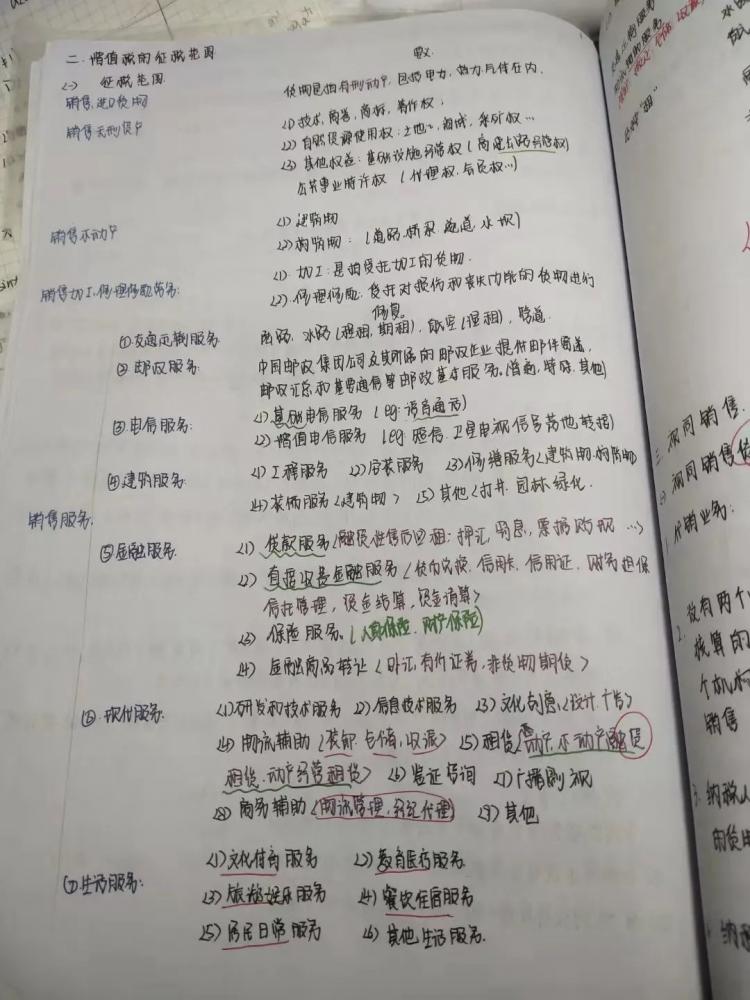 二.增值税的征税范围
释义.
(一) 征税范围
销售.进口货物
货物是指有形动产,包括电力、热力、气体在内.
销售无形资产
(1)技术,商誉,商标,著作权;
(2)自然资源使用权:土地~,海域,采矿权…
(3)其他权益:基础设施经营权(高速公路经营权)
公共事业特许权(代理权.会员权…)
销售不动产
(1)建筑物
(2)构筑物:(道路.桥梁.隧道.水坝)
销售加工.修理修配劳务:
(1).加工:是指受托加工的货物.
(2).修理修配.受托对损伤和丧失功能的货物进行
修复。
①交通运输服务
水路(程租,期租),航空(湿租),管道.
②邮政服务
中国邮政集团公司及其所属的邮政企业提供邮件寄递,
邮政汇兑和机要通信等邮政基本服务。(普遍,特殊.其他)
③电信服务:
(1).基础电信服务(eg:语音通话)
(2)增值电信服务(eg 短信.卫星电视信号落地转接)
④建筑服务:
(1)工程服务 (2)安装服务 (3)修缮服务<建筑物.构筑物
(4)装饰服务<建筑物> (5)其他<打井.园林绿化.
销售服务:
⑤金融服务:
(1)贷款服务(融资性售后回租:押汇,罚息,票据贴现…)
(2)直接收费金融服务<货币兑换.信用卡.信用证.财务担保
信托管理,资金结算,资金清算>
(3)保险服务。(人身保险.财产保险)
(4)金融商品转让(外汇,有价证券.非货物期货>
⑥.现代服务:
(1)研发和技术服务 (2)信息技术服务 (3)文化创意(设计.广告)
(4)物流辅助(装卸.仓储,收派) (5)租赁(动产.不动产融资
租赁.动产经营租赁) (6)鉴证咨询 (7)广播影视
(8)商务辅助(物流管理,经纪代理) (9)其他
⑦生活服务:
(1)文化体育服务 (2)教育医疗服务
(3)旅游娱乐服务 (4)餐饮住宿服务
(5)居民日常服务 (6)其他生活服务.
三.视同销售.
视同销售货
1.代销业务:
2.设有两个
核算的
个机构
销售
3.纳税人
的货